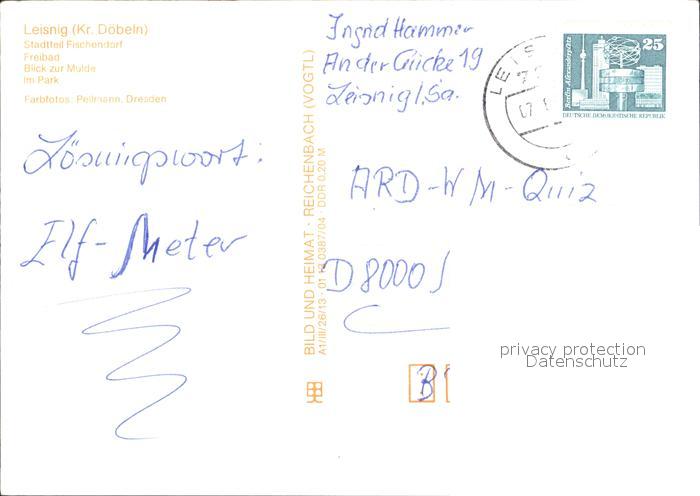 Leisnig (Kr. Döbeln)
Stadtteil Fischendorf
Freibad
Blick zur Mulde
Im Park
Farbfotos: Pellmann, Dresden
Lösungswort:
Elf-Meter
BILD UND HEIMAT · REICHENBACH (VOGTL)
A1/III/26/13 · 01 12 0387/04 DDR 0,20 M
Ingrid Hammer
An der Cücke 19
Leisnig/Sa.
LEIS
25
Berlin, Alexanderplatz
DEUTSCHE DEMOKRATISCHE REPUBLIK
ARD-WM-Quiz
D 8000
B
privacy protection
Datenschutz